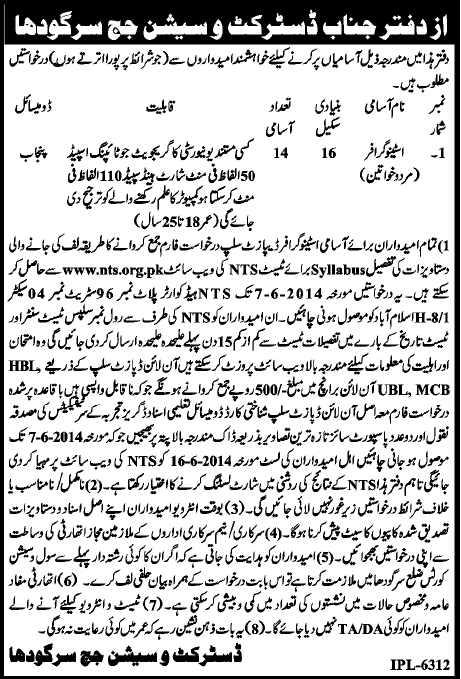 از دفتر جناب ڈسٹرکٹ و سیشن جج سرگودھا
دفتر ہذا میں مندرجہ ذیل آسامیاں پر کرنے کیلئے خواہشمند امیدواروں سے (جو شرائط پر پورا اترتے ہوں) درخواستیں
مطلوب ہیں۔
نمبر شمار نام آسامی بنیادی سکیل تعداد آسامی قابلیت ڈومیسائل
1۔ اسٹینوگرافر (مرد و خواتین) 16 14 کسی مستند یونیورسٹی کا گریجویٹ جو ٹائپنگ اسپیڈ پنجاب
50 الفاظ فی منٹ شارٹ ہینڈ سپیڈ 110 الفاظ فی
منٹ کر سکتا ہو کمپیوٹر کا علم رکھنے والے کو ترجیح دی
جائے گی (عمر 18 تا 25 سال)
1) تمام امیدواران برائے آسامی اسٹینوگرافر ڈیپازٹ سلپ درخواست فارم جمع کروانے کا طریقہ لف کی جانے والی
دستاویزات کی تفصیل Syllabus برائے ٹیسٹ NTS کی ویب سائٹ www.nts.org.pk سے حاصل کر
سکتے ہیں۔ یہ درخواستیں مورخہ 7-6-2014 تک NTS ہیڈ کوارٹر پلاٹ نمبر 96 سٹریٹ نمبر 04 سیکٹر
H-8/1 اسلام آباد کو موصول ہونی چاہئیں۔ ان امیدواران کو NTS کی طرف سے رول نمبر سلپس ٹیسٹ سنٹر اور
ٹیسٹ تاریخ کے بارے میں تفصیلات ٹیسٹ سے کم از کم 15 دن پہلے علیحدہ علیحدہ ارسال کر دی جائیں گی وہ امتحان
اور اہلیت کی معلومات کیلئے مندرجہ بالا ویب سائٹ پر وزٹ کر سکتے ہیں آن لائن ڈپازٹ سلپ کے ذریعے HBL,
UBL, MCB آن لائن برانچ میں مبلغ -/500 روپے جمع کروانے ہونگے جو کہ ناقابل واپسی ہیں باقاعدہ پر شدہ
درخواست فارم معہ اصل آن لائن ڈپازٹ سلپ شناختی کارڈ ڈومیسائل تعلیمی اسناد گریز تجربہ کے سرٹیفکیٹس کی مصدقہ
نقول اور دو عدد پاسپورٹ سائز تازہ ترین تصاویر بذریعہ ڈاک مندرجہ بالا پتہ پر بھیجیں جو کہ مورخہ 7-6-2014 تک
موصول ہو جانی چاہئیں اہل امیدواران کی لسٹ مورخہ 16-6-2014 کو NTS کی ویب سائٹ پر مہیا کر دی
جائیگی تاہم دفتر ہذا NTS کے نتائج کی روشنی میں شارٹ لسٹنگ کرنے کا اختیار رکھتا ہے۔ (2) نامکمل / نامناسب یا
خلاف شرائط درخواستیں زیر غور نہیں لائی جائیں گی۔ (3) بوقت انٹرویو امیدواران اپنے اصل اسناد و دستاویزات
تصدیق شدہ کاپیوں کا سیٹ پیش کرنا ہوگا۔ (4) سرکاری / نیم سرکاری اداروں کے ملازمین مجاز اتھارٹی کی وساطت
سے اپنی درخواستیں بھجوائیں۔ (5) امیدواران کو ہدایت کی جاتی ہے کہ اگر ان کا کوئی رشتہ دار پہلے سے سول و سیشن
کورٹس ضلع سرگودھا میں ملازمت کرتا ہے تو اس بابت درخواست کے ہمراہ بیان حلفی لف کرے۔ (6) اتھارٹی مفاد
عامہ و مخصوص حالات میں نشستوں کی تعداد میں کمی و بیشی کر سکتی ہے۔ (7) ٹیسٹ و انٹرویو کیلئے آنے والے
امیدواران کو کوئی TA/DA نہیں دیا جائے گا۔ (8) یہ بات ذہن نشین رہے کہ عمر میں کوئی رعایت نہ ہوگی۔
ڈسٹرکٹ و سیشن جج سرگودھا
IPL-6312